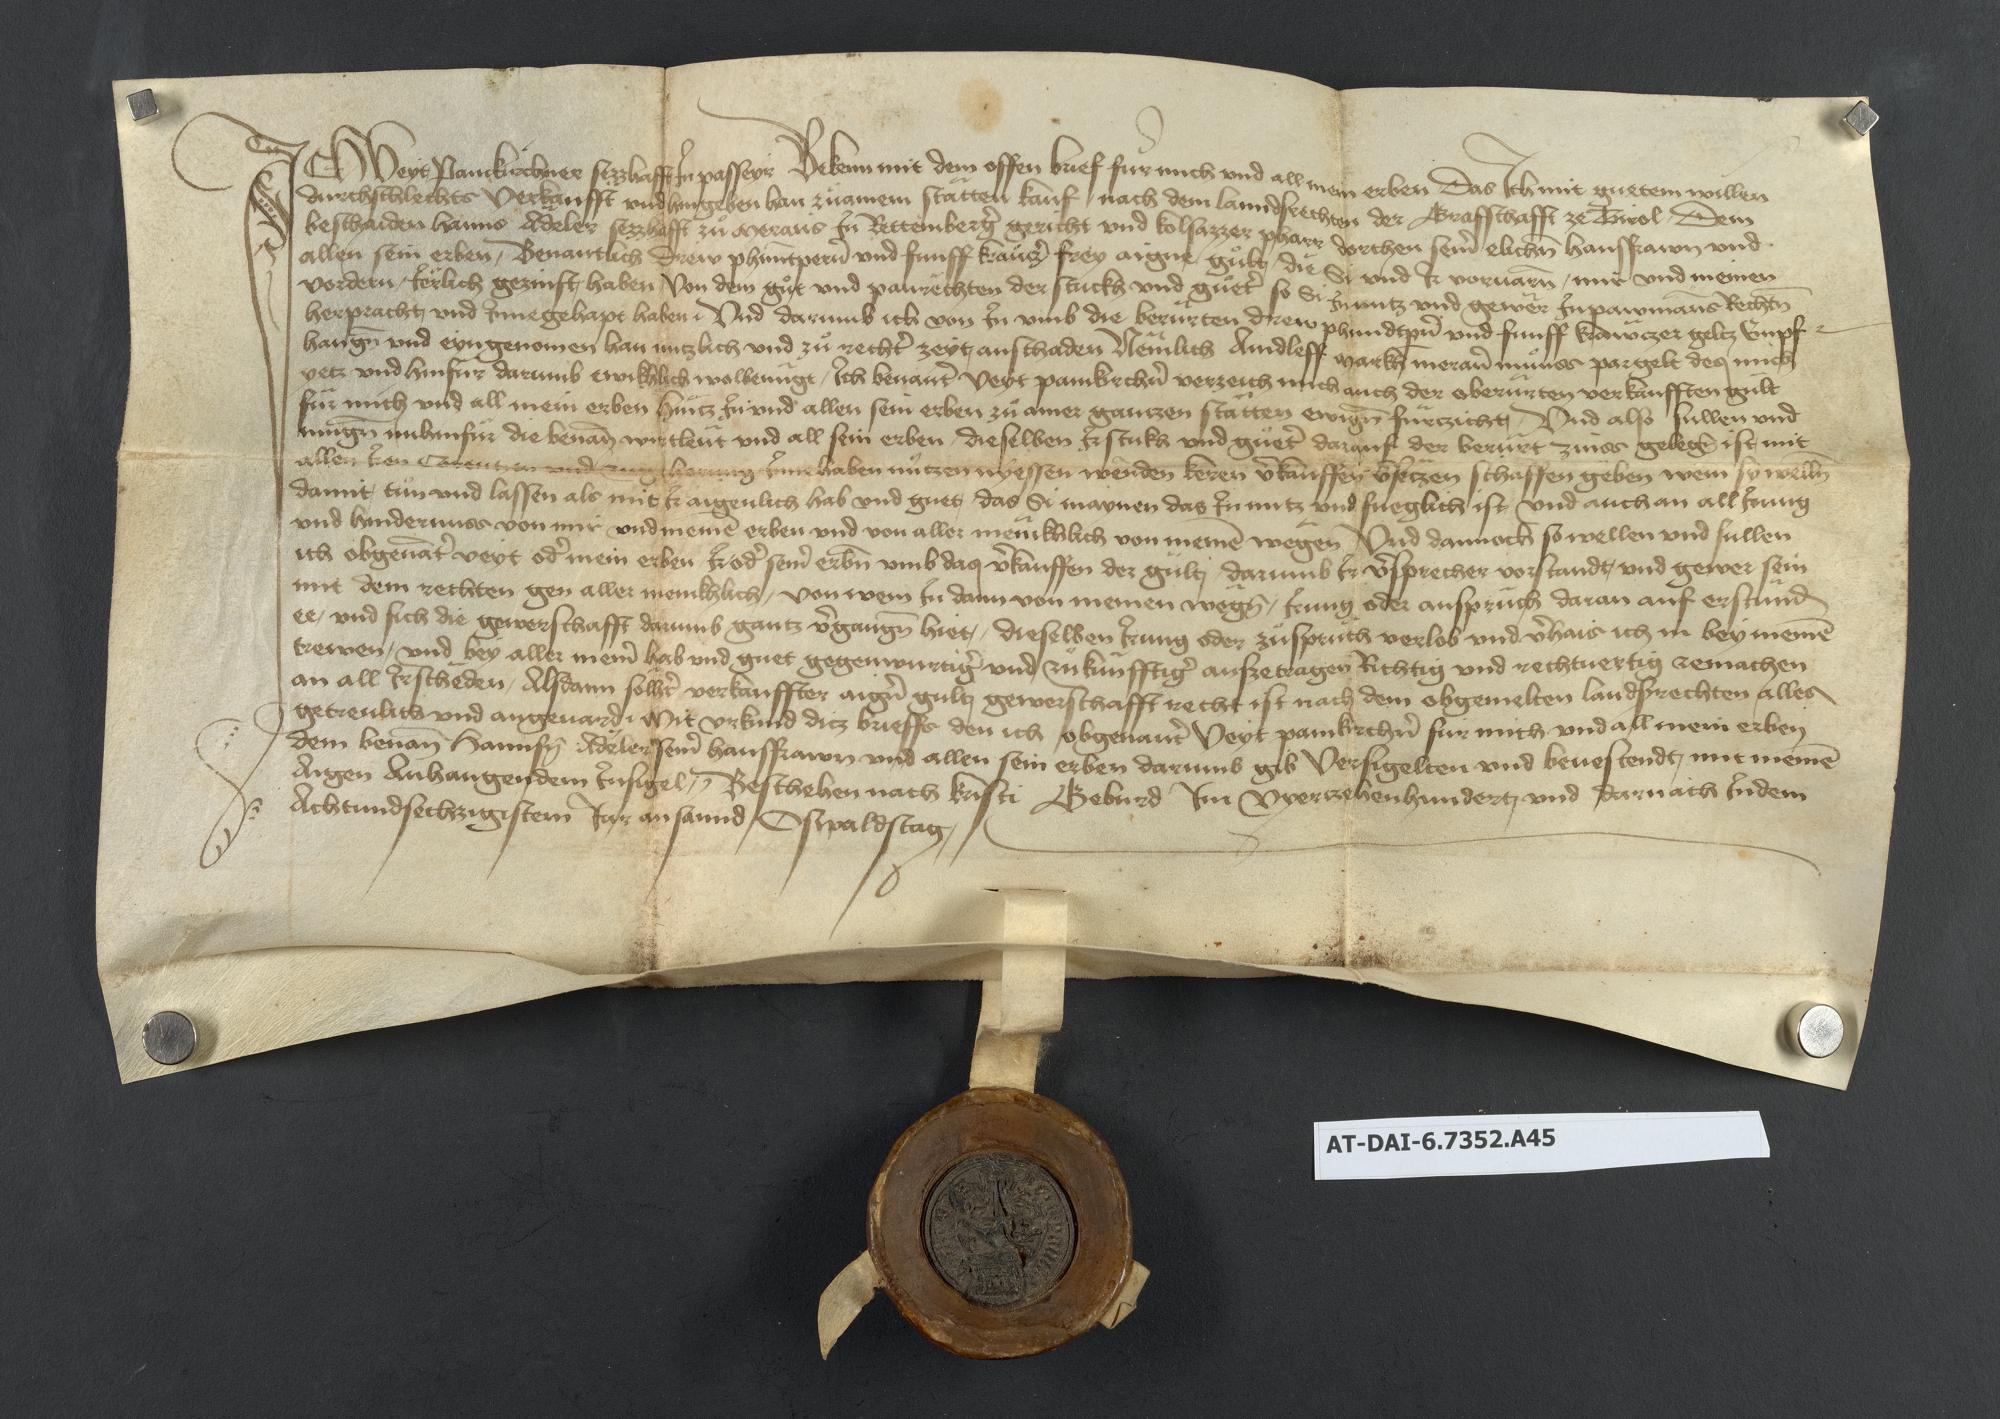 Ich Veyt Pamkirchner sezzhafft Jn passeyr Bekenn mit dem offen brief fur mich und all mein erben Das Jch mit guetem willen
durchschlechts Verkaufft und hingeben han zu ainem stätten kauf / nach dem lanndsrechten der Grafschafft ze Tirol / Dem
beschaiden Hanns Adeler sezzhafft zu Merans Jn Rettemberg gericht und kolsazzer pharr dorthen seiner elichn hausfrawn und
allen sein erben / Benantlich Drew phuntperner und funff krauczer frey aigne gült / die Si und Jr vorvarn / mir und meinen
vordern / Järlich gezinst haben Von dem gut und paurechten der stuckh und gueter so Si Jn nutz und gewer Jn pawmans Rechtn
herpracht und Jnnegehapt haben / Und darumb ich von Jn umb die berürten drew phundtperner und funff krawczer geltz Emph-
hangn und eyngenomen han nutzlich und zu rechter zeyt anschaden Nemlich Aindleff markh meraner münss pargelt des mich
yetz und hinfur darumb ewikhlich wolbenügt / Jch benanter Veyt pamkirchner verzeich mich auch der oberürten verkaufften gült
für mich und all mein erben hintz Jn und allen sein erben zu ainer gantzen stätten ewign fürczicht / Und also sullen und
mugn nu hinfür die benan wirtleut und all sein erben / dieselben Jr stukh und gueter darauf der berürt zinss gelegn ist mit
allen Jren Eren nutzen und zugehorung Jnnehaben nutzen nyessen wenden keren verkauffen versetzen schaffen geben wem sy welln
damit tun und lassen als mit Jr aigenlich hab und guet das Si maynen das Jn nutz und fueglich ist / und auch an all Jrrung
und hindernuss von mir und meinen erben und von aller menikhlich von meinen wegen Und dannoch so wellen und sullen
ich obgenanter veyt oder mein erben Jr oder seiner erbn umb das verkauffen der gült / darumb Jr versprecher vorstandt und gewer sein
mit dem rechten gen aller menikhlich / von wem Jn dann von meinen wegn / Jrrung oder anspruch daran auf erstund
ee / und sich die gewerschafft darumb gantz vergangn hiet / dieselben Jrrung oder zuspruch verlob und verhais ich in bey meinen
trewen / und bey aller meiner hab und guet gegenwurtiger und zukünfftiger auszetragen Richtig und rechtvertig zemachen
an all Jr scheden / Alsdann solher verkauffter aigner gult gewerschafft recht ist nach dem obgemelten landsrechten alles
getreulich und angevard / Mit urkund ditz brieffs den ich obgenanter Veyt pamkirchner fur mich und all mein erben
dem benan Hannsn Adeler seiner hausfrawn und allen sein erben darumb gib Versigelten und bevestendt mit meinem
Aigen Anhangendem Jnsigel / Beschehen nach Kristi Geburd Jm Vyerzehenhundert und darnach Jn dem
Achtundsechzigistem Jar an sannd Oswaldstag
AT-DAI-6.7352.A45